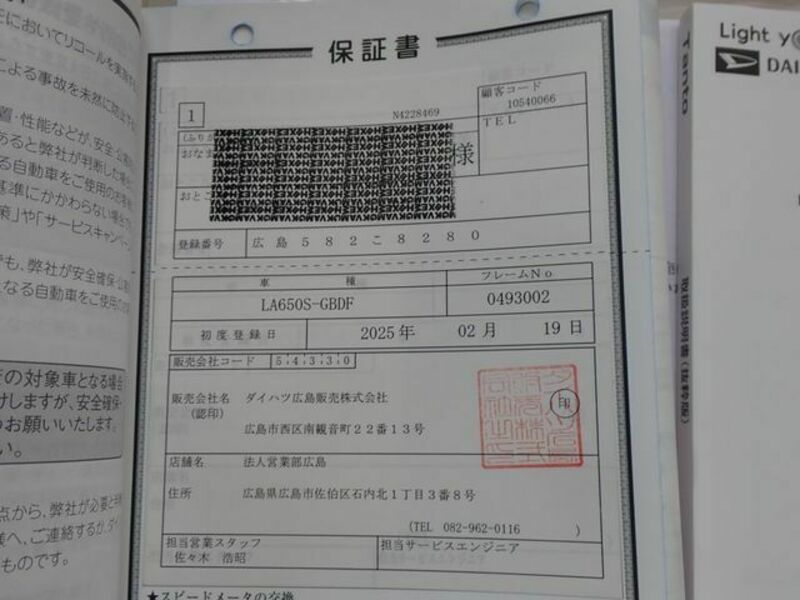 保証書
1
N4228469
顧客コード
10540066
TEL
おなま
様
おところ
登録番号 広島 582こ8280
車種
フレームNo
LA650S-GBDF
0493002
初度登録日 2025年 02月 19日
販売会社コード 54330
販売会社名 ダイハツ広島販売株式会社
(認印)
印
広島市西区南観音町22番13号
店舗名 法人営業部広島
住所 広島県広島市佐伯区石内北1丁目3番8号
(TEL 082-962-0116 )
担当営業スタッフ
佐々木 浩昭
担当サービスエンジニア
★スピードメータの交換
においてリコールを実施
よる事故を未然に防止す
置・性能などが、安全・公
あると弊社が判断した場合
る自動車をご使用のお客様
基準にかかわらない場合で
策」や「サービスキャンペーン
でも、弊社が安全確保・公
となる自動車をご使用のお客
の対象車となる場合
けしますが、安全確保・
のお願いいたします。
い。
点から、弊社が必要と判
様へ、ご連絡するか、ダイ
ものです。
Light y
DAI
Tanto
取扱説明書(抜粋版)